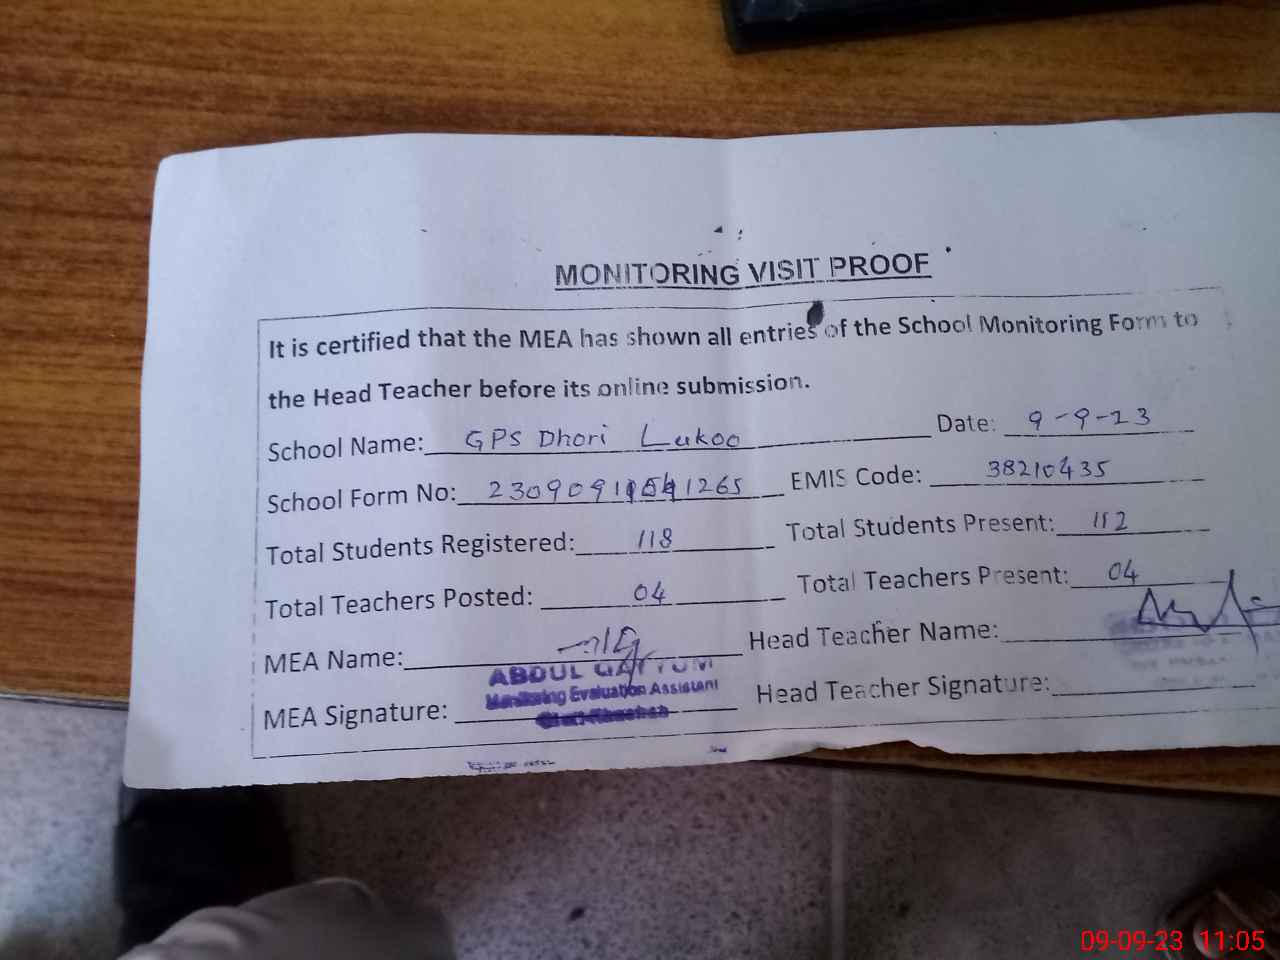 MONITORING VISIT PROOF
It is certified that the MEA has shown all entries of the School Monitoring Form to
the Head Teacher before its online submission.
School Name: GPS Dhori Lukoo Date: 9-9-23
School Form No: EMIS Code: 38210435
Total Students Registered: 118 Total Students Present: 112
Total Teachers Posted: 04 Total Teachers Present: 04
MEA Name: Head Teacher Name:
ABDUL QAYYUM
Monitoring Evaluation Assistant
MEA Signature: Head Teacher Signature:
09-09-23 11:05